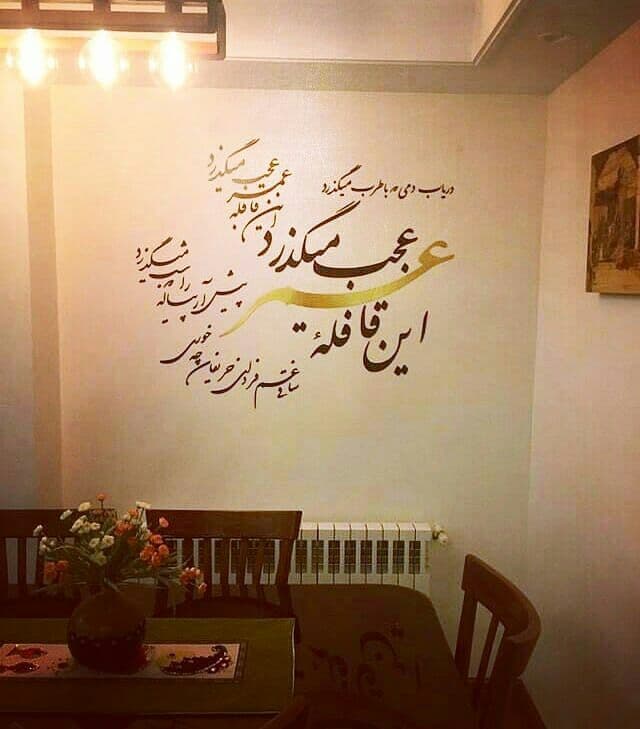 این قافلهٔ عمر عجب میگذرد
دریاب دمی که با طرب میگذرد
ساقی غم فردای حریفان چه خوری
پیش آر پیاله را که شب میگذرد
این قافله عمر عجب میگذرد